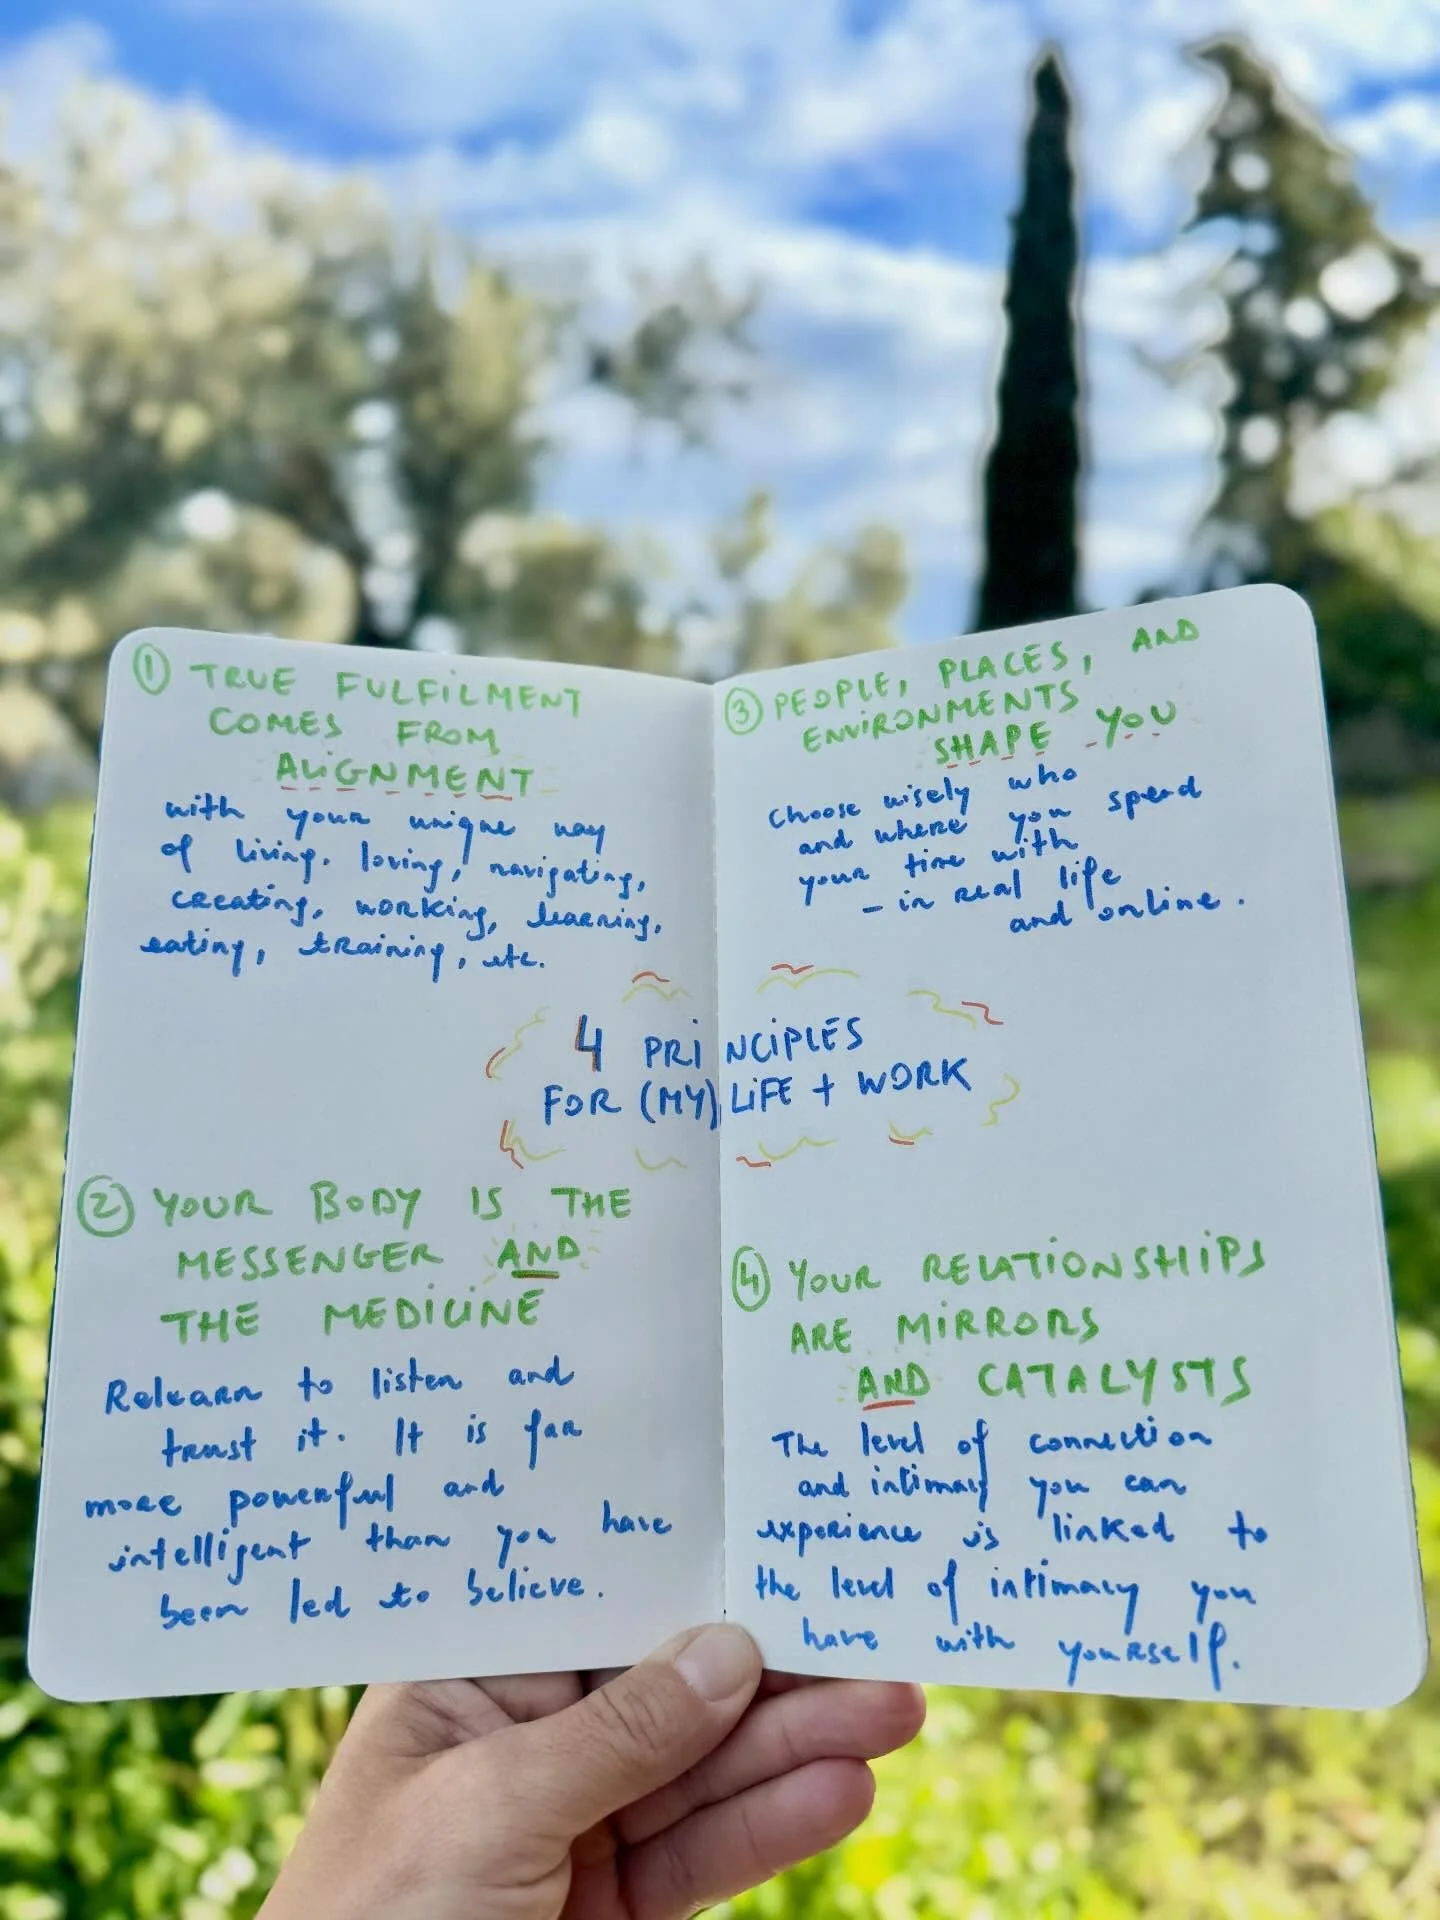 ① TRUE FULFILMENT
COMES FROM
ALIGNMENT
with your unique way
of living, loving, navigating,
creating, working, learning,
eating, training, etc.
② YOUR BODY IS THE
MESSENGER AND
THE MEDICINE
Relearn to listen and
trust it. It is far
more powerful and
intelligent than you have
been led to believe.
4 PRINCIPLES
FOR (MY) LIFE + WORK
③ PEOPLE, PLACES, AND
ENVIRONMENTS
SHAPE YOU
Choose wisely who
and where you spend
your time with
- in real life
and online.
④ YOUR RELATIONSHIPS
ARE MIRRORS
AND CATALYSTS
The level of connection
and intimacy you can
experience is linked to
the level of intimacy you
have with yourself.